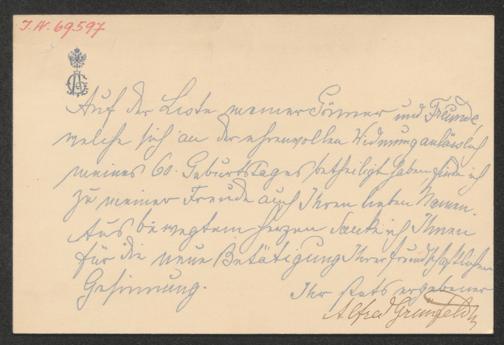 I. N. 69597
AG
Auf der Liste meiner Gönner und Freunde,
welche sich an der ehrenvollen Widmung anlässlich
meines 60. Geburtstages betheiligt haben, finde ich
zu meiner Freude auch Ihren lieben Namen.
Aus bewegtem Herzen danke ich Ihnen
für die neue Betätigung Ihrer freundschaftlichen
Gesinnung.
Ihr stets ergebener
Alfred Grünfeld